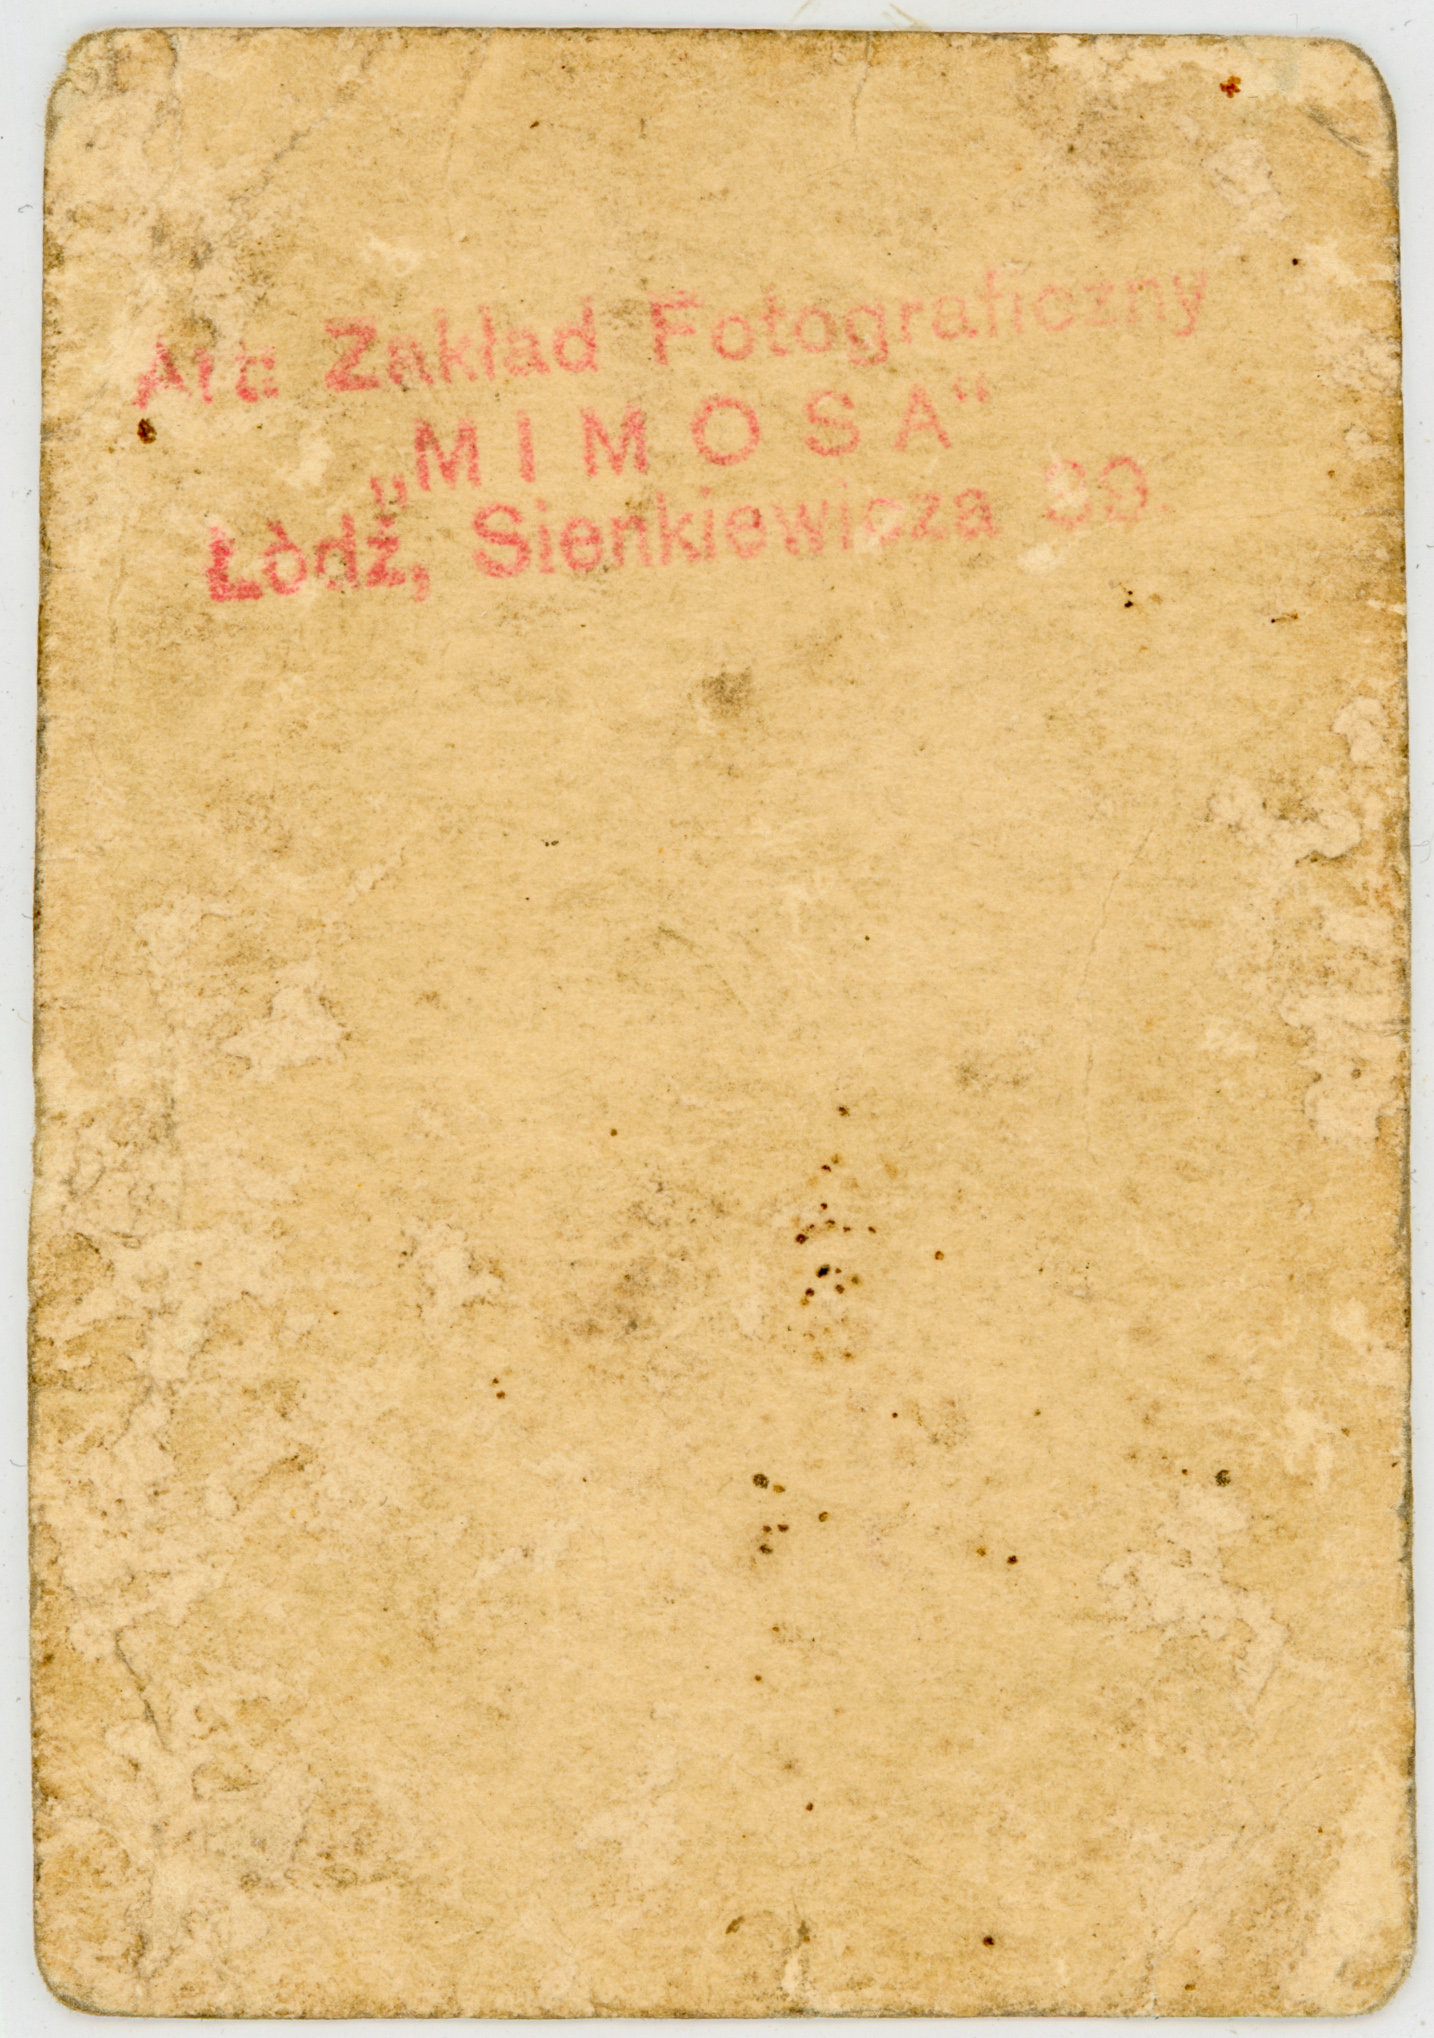 Art: Zakład Fotograficzny
„MIMOSA“
Łòdź, Sienkiewicza